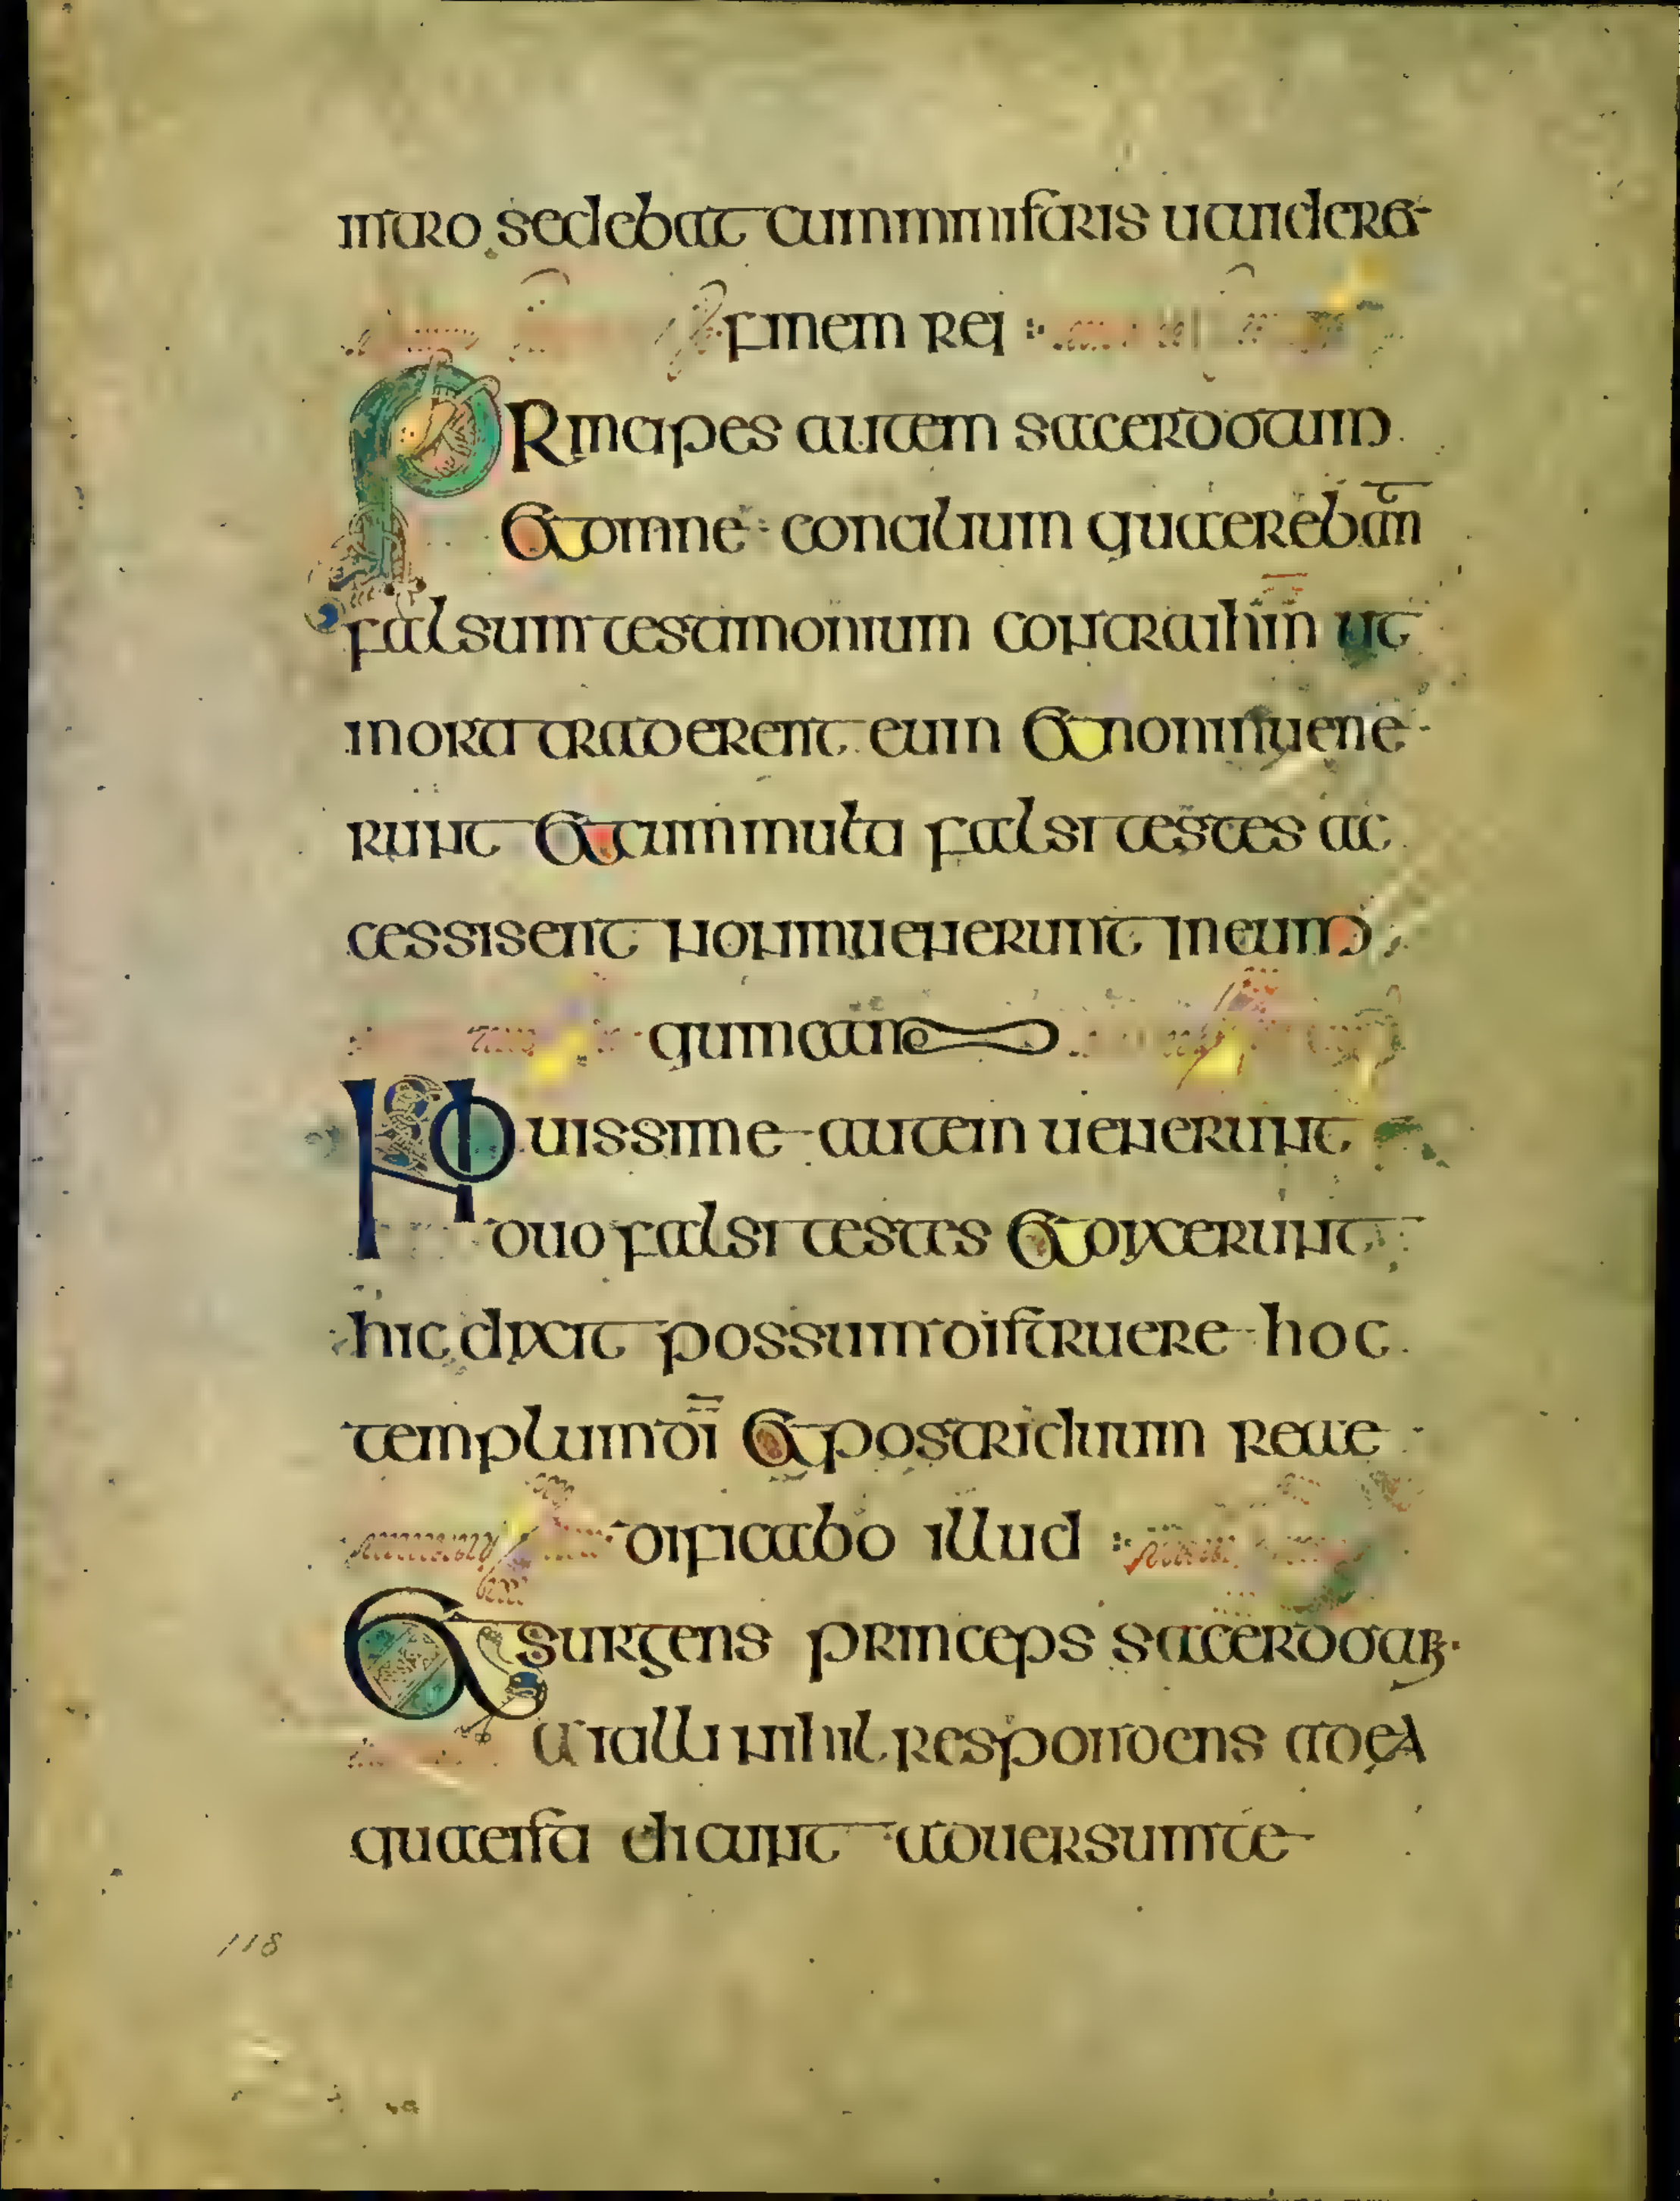 intro sedebat cum ministris ut uideret
finem rei
PRincipes autem sacerdotum
et omne concilium quaerebant
falsum testimonium contra ihm ut
in orti traderent eum et non inuene
runt et cum multi falsi testes ac
cessisent non inuenerunt in eum
quimtam
Nouissime autem uenerunt
duo falsi testes et dixerunt
hic dixit possum distruere hoc
templum di et post triduum reae
dificabo illud
Et surgens princeps sacerdotum
ait illi nihil respondens ad ea
quae isti dicunt aduersum te
118